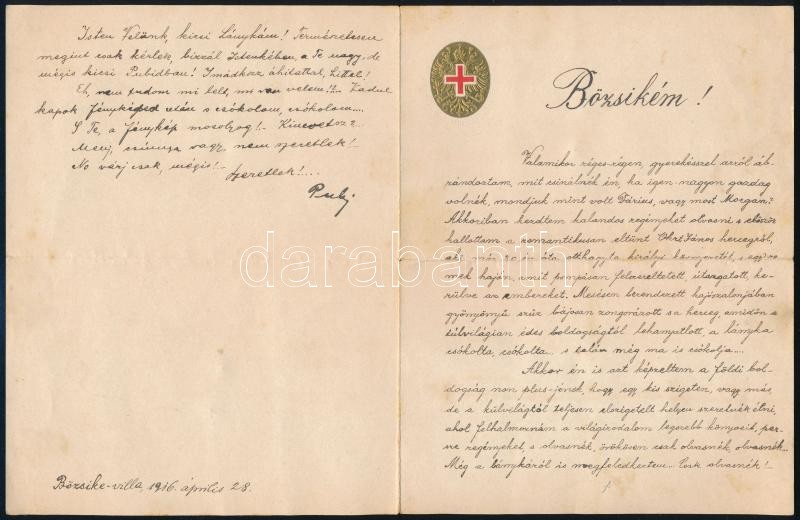 Isten Velünk, kicsi Lánykám! Természetesen
megint csak kérlek, bizzál Istenkében, a Te nagy, de
mégis kicsi Pubidban! Imádkozz áhitattal, Littel!
Eh, nem tudom mi lelt, mi van velem!!.. Ladul
kapok fényképed után s csókolom, csókolom....
S Te, a fénykép mosolyog!- Kinevetsz?
Menj, csúnya vagy, nem szeretlek!
No várj csak, mégis!-
Szeretlek!....
Pubi
Bözsike-villa, 1916. április 28.
Bözsikém!
Valamikor réges-régen, gyerekésszel arról áb-
rándoztam, mit csinálnék én, ha igen nagyon gazdag
volnék, mondjuk mint volt Dárius, vagy most Morgan?
Akkoriban kezdtem kalandos regényeket olvasni s először
hallottam a romantikusan eltünt Orth János hercegről,
aki már otthagyta királyi környezetét, s egy re-
mek hajón, amit pompásan felszereltetett, útazgatott, ke-
rülve az embereket. Mesésen berendezett hajószalonjában
gyönyörű szűz bájosan zongorázott s a herceg, amidőn a
túlvilágian édes boldogságtól lehanyatlott, a lányka
csókolta, csókolta... s talán még ma is csókolja....
Akkor én is azt képzeltem a földi bol-
dogság non plus-jének, hogy egy kis szigeten, vagy más,
de a külvilágtól teljesen elszigetelt helyen szeretnék élni,
ahol felhalmoznám a világirodalom legszebb könyveit, per-
sze regényeket, s olvasnék, örökösen csak olvasnék, olvasnék...
Még a lánykáról is megfeledkeztem... Csak olvasnék!-
darabanth